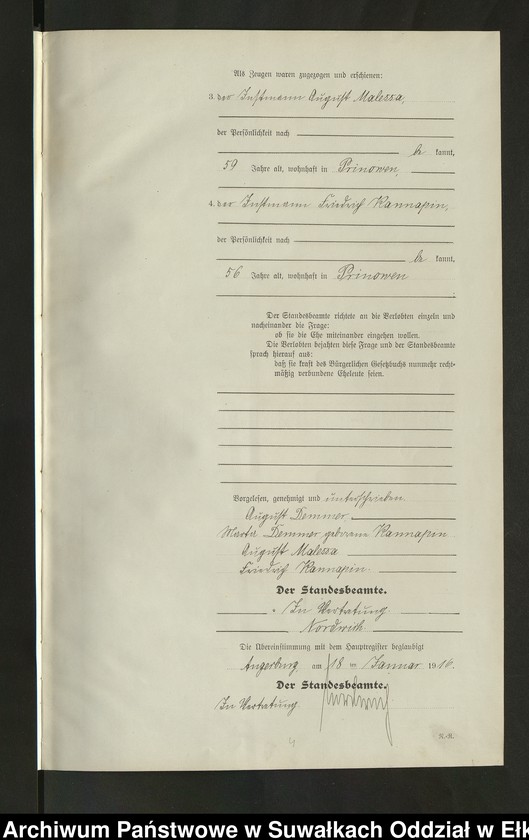 Als Zeugen waren zugezogen und erschienen:
3. der Instmann August Malessa,
der Persönlichkeit nach
be kannt,
59 Jahre alt, wohnhaft in Prinowen,
4. der Instmann Friedrich Kannapin,
der Persönlichkeit nach
be kannt,
56 Jahre alt, wohnhaft in Prinowen
Der Standesbeamte richtete an die Verlobten einzeln und
nacheinander die Frage:
ob sie die Ehe miteinander eingehen wollen.
Die Verlobten bejahten diese Frage und der Standesbeamte
sprach hierauf aus:
daß sie kraft des Bürgerlichen Gesetzbuchs nunmehr recht-
mäßig verbundene Eheleute seien.
Vorgelesen, genehmigt und unterschrieben
August Demmer
Marta Demmer geborene Kannapin
August Malessa
Friedrich Kannapin
Der Standesbeamte.
In Vertretung
Nordwich
Die Übereinstimmung mit dem Hauptregister beglaubigt
Angerburg, am 18 ten Januar 1916.
Der Standesbeamte.
In Vertretung
R.-R.
Archiwum Państwowe w Suwałkach Oddział w Ełk